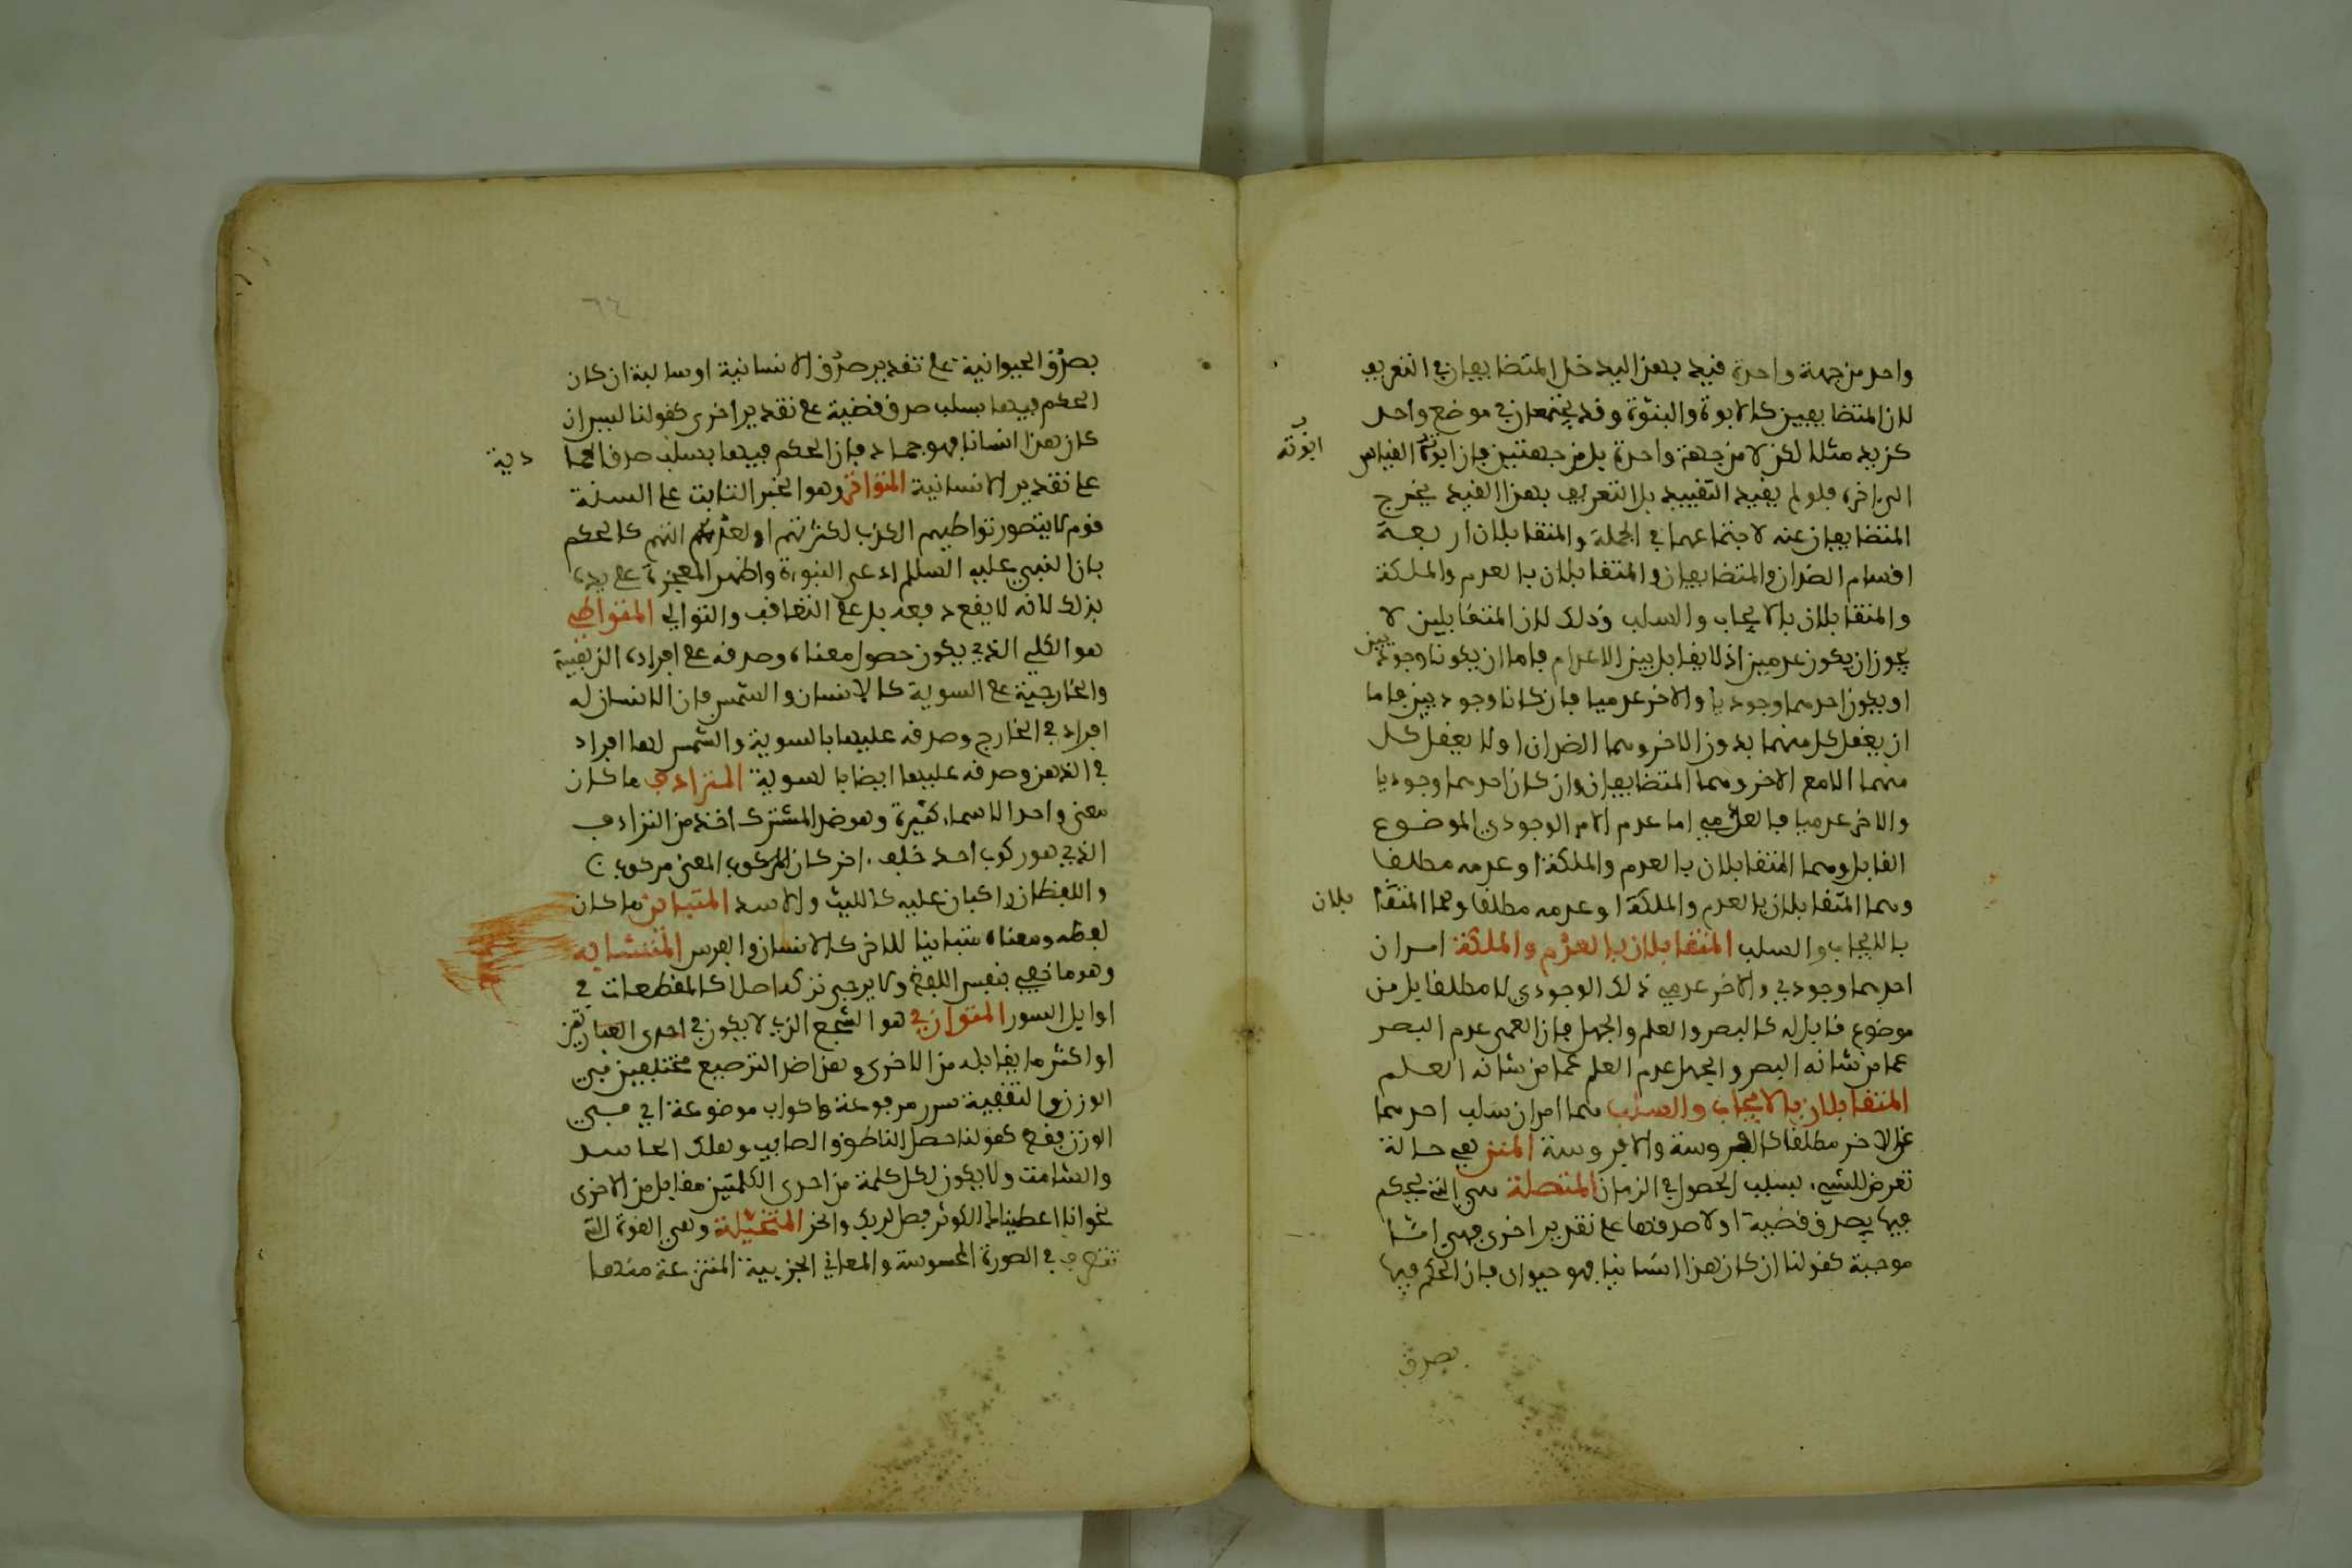 واحد من جهة واحدة قيد بهذا ليدخل المتضايفان في التعريف
لان المتضايفين كالابوة والبنوة وقد يجتمعان في موضع واحد
كزيد مثلا لكن لا من جهة واحدة بل من جهتين فان ابوته القياس
ابوته
الى اخر، فلو لم يقيد التقييد بل التعريف بهذا القيد يخرج
المتضايفان عنه لاجتماعهما في الجملة والمتقابلان اربعة
اقسام الضدان والمتضايفان والمتقابلان بالعدم والملكة
والمتقابلان بالايجاب والسلب وذلك لان المتقابلين لا
يجوز ان يكون عدميين اذ لا يقابل بين الاعدام فاما ان يكونا وجوديين
او يكون احدهما وجوديا والاخر عدميا فان كانا وجوديين فاما
ان يعقل كل منهما بدون الاخر وهما الضدان او لا يعقل كل
منهما الا مع الاخر وهما المتضايفان وان كان احدهما وجوديا
والاخر عدميا فالعدمي اما عدم الامر الوجودي الموضوع
القابل وهما المتقابلان بالعدم والملكة او عدمه مطلقا
وهما المتقابلان بالعدم والملكة او عدمه مطلقا وهما المتقا بلان
بالايجاب والسلب المتقابلان بالعدم والملكة امران
احدهما وجودي والاخر عدمي ذلك الوجودي لا مطلقا بل من
موضوع قابل له كالبصر والعلم والجهل فان العمى عدم البصر
عما من شانه البصر والجهل عدم العلم عما من شانه العلم
المتقابلان بالايجاب والسلب هما امران سلب احدهما
عن الاخر مطلقا كالفروسة والافروسة المتى هي حالة
تعرض للشيء بسبب الحصول في الزمان المتصلة هي التي يحكم
فيها بصدق قضية او لا صدقها على تقدير اخرى فهي اما
موجبة كقولنا ان كان هذا انسانيا فهو حيوان فان الحكم فيها
بصدق
٦٤
بصدق الحيوانية على تقدير صدق الانسانية او سالبة ان كان
الحكم فيها بسلب صدق قضية على تقدير اخرى كقولنا ليس ان
كان هذا انسانا فهو جماد فان الحكم فيها بسلب صدق الجما دية
على تقدير الانسانية المتواتر وهو الخبر الثابت على السنة
قوم لا يتصور تواطيهم الكذب لكثرتهم او لعدالتهم كالحكم
بان النبي عليه السلام ادعى النبوة واظهر المعجزة على يده
بذلك لانه لا يقع دفعة بل على التعاقب والتوالي المتواطي
هو الكلي الذي يكون حصول معناه وصدقه على افراده الذهنية
والخارجية على السوية كالانسان والشمس فان الانسان له
افراد في الخارج وصدقه عليها بالسوية والشمس لها افراد
في الذهن وصدقه عليها ايضا بالسوية المترادف ما كان
معنى واحدا لاسماء كثيرة وهو ضد المشترك اخذ من الترادف
الذي هو ركوب احد خلف اخر كان المركوب المعنى مركوب
واللفظان راكبان عليه كالليث والاسد المتباين ما كان
لفظه ومعناه متباينا للاخر كالانسان والفرس المتشابه
وهو ما خفي بنفس اللفظ ولا يرجى تركه اصلا كالمقطعات في
اوايل السور المتوازي هو السجع الذي لا يكون في احدى العبارتين
او اكثر ما يقابله من الاخرى وهذا ضد الترصيع مختلفين في
الوزن والتقفية سرر مرفوعة واكواب موضوعة اي في
الوزن فقط كقولنا حصل الناطق والصايب وهلك الحاسد
والشامت ولا يكون لكل كلمة من احدى الكلمتين مقابل من الاخرى
نحو انا اعطيناك الكوثر فصل لربك وانحر المتخيلة وهي القوة التي
تتصرف في الصورة المحسوسة والمعاني الجزيية المنتزعة منها